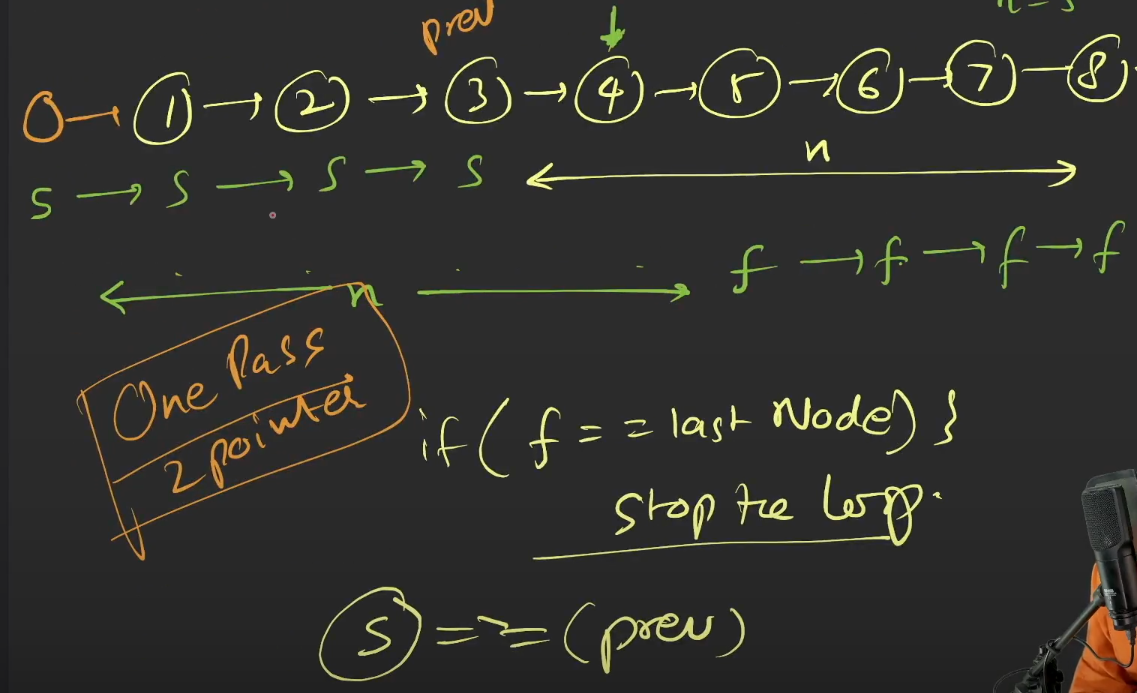 n=5
prev
1 → 2 → 3 → 4 → 5 → 6 → 7 — 8
n
S → S → S → S
f → f → f → f
n
One Pass
2 pointer
if (f == last Node) }
stop the loop.
S == (prev)